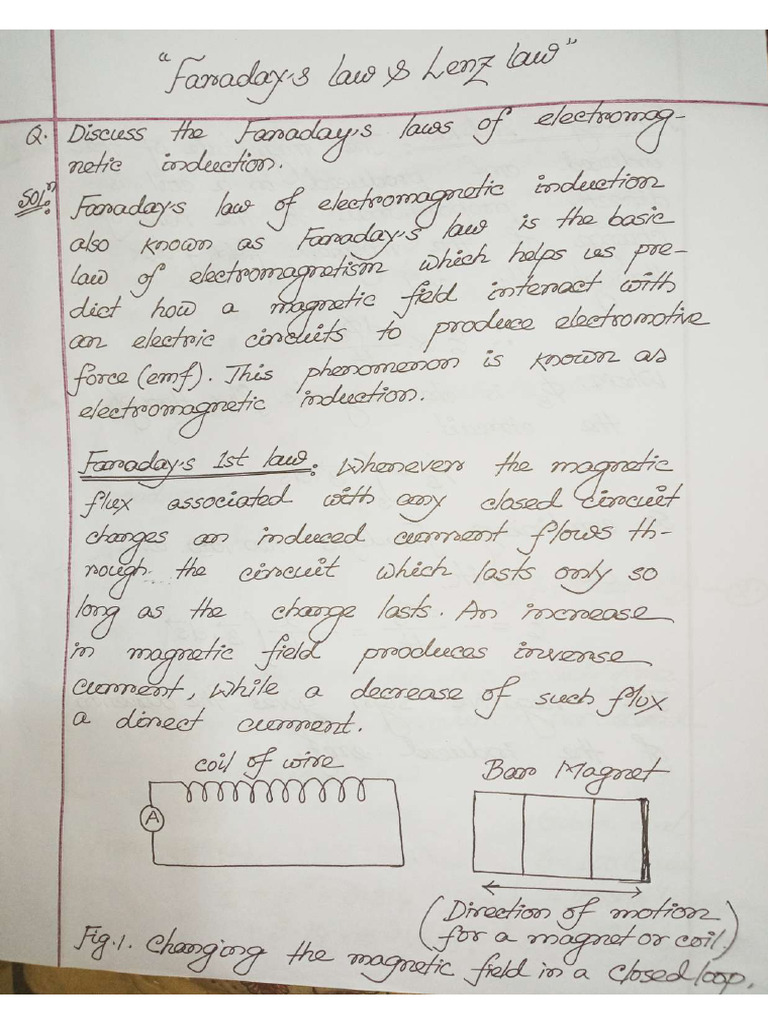 "Faraday's law & Lenz law"
Q. Discuss the Faraday's laws of electromag-
netic induction.
Solⁿ: Faraday's law of electromagnetic induction
also known as Faraday's law is the basic
law of electromagnetism which helps us pre-
dict how a magnetic field interact with
an electric circuits to produce electromotive
force (emf). This phenomenon is known as
electromagnetic induction.
Faraday's 1st law: Whenever the magnetic
flux associated with any closed circuit
changes an induced current flows th-
rough the circuit which lasts only so
long as the change lasts. An increase
in magnetic field produces inverse
current, while a decrease of such flux
a direct current.
coil of wire
Bar Magnet
A
(Direction of motion
for a magnet or coil.)
Fig.1. Changing the magnetic field in a closed loop.